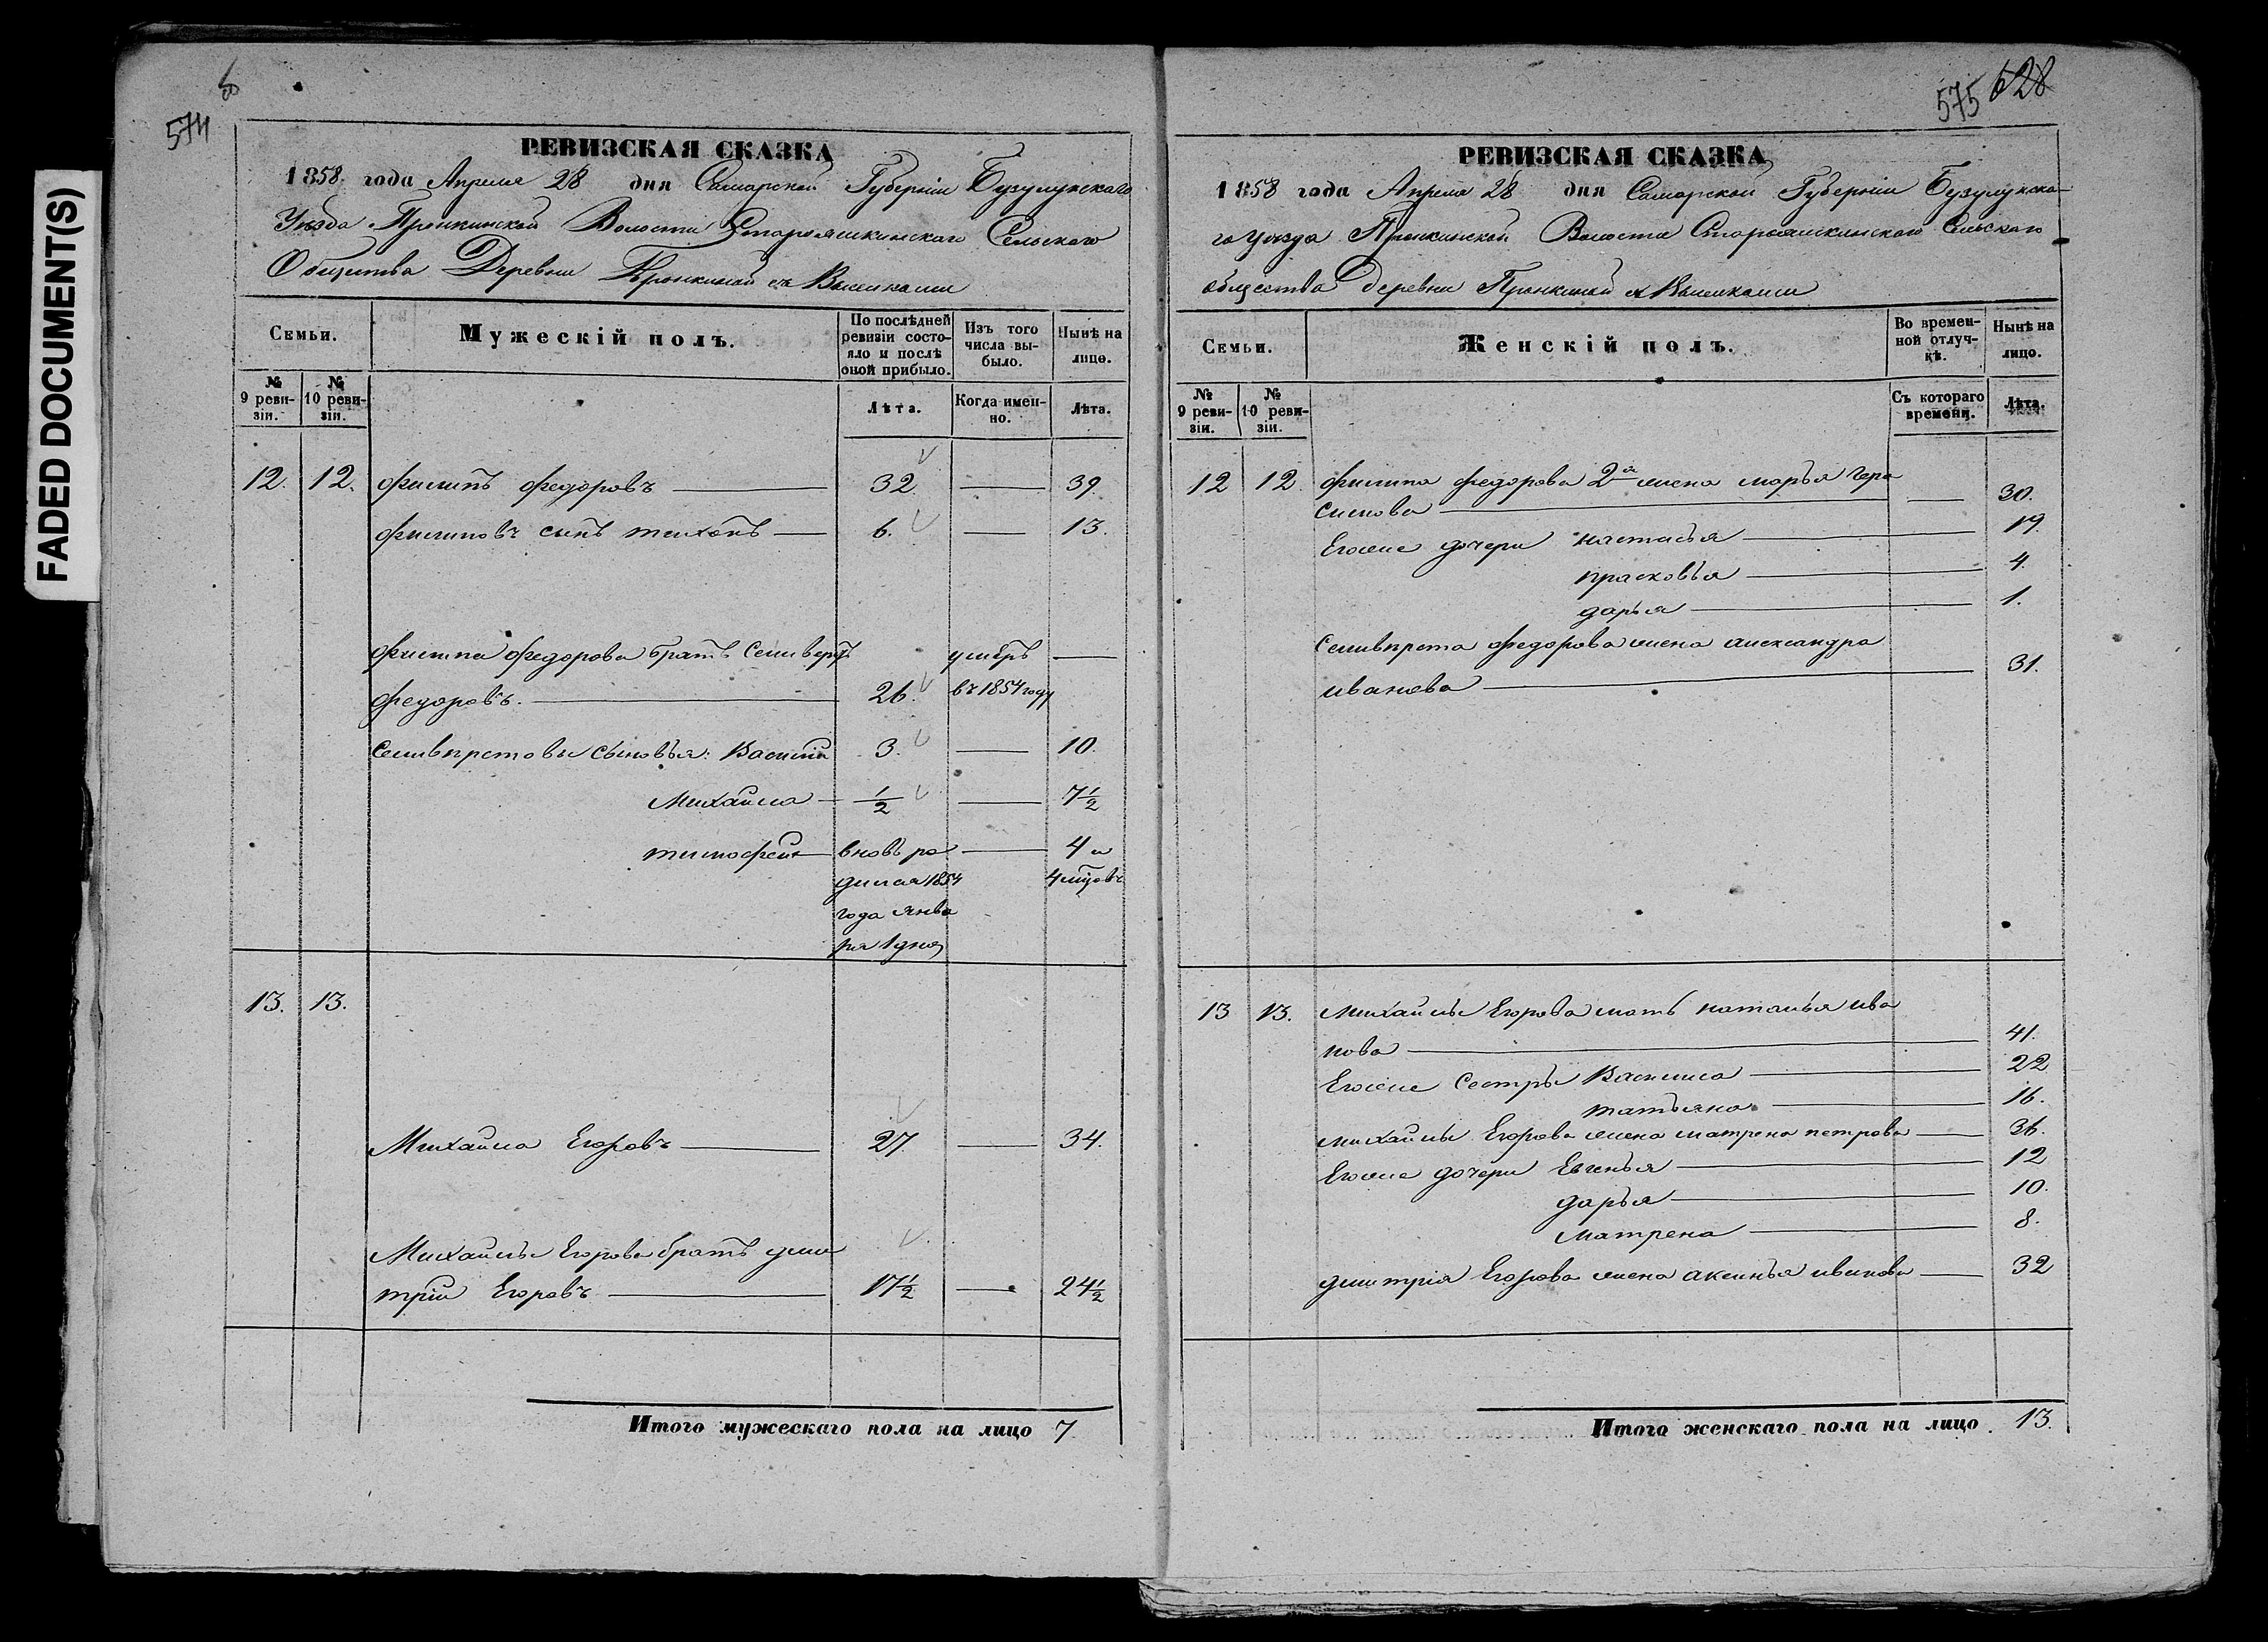 FADED DOCUMENT(S)
574
РЕВИЗСКАЯ СКАЗКА
1858 года Апреля 28 дня Самарской Губерніи Бузулукскаго
Уѣзда Пронкинской Волости Старояшкинскаго Сельскаго
Общества Деревни Пронкиной съ Выселками
Семьи.
Мужескій полъ.
По послѣдней ревизіи состояло и послѣ оной прибыло.
Изъ того числа выбыло.
Нынѣ на лицо.
№ 9 ревизіи.
№ 10 ревизіи.
Лѣта.
Когда именно.
Лѣта.
12. 12. Филипъ Федоровъ 32. 39.
Филиповъ сынъ тихонъ 6. 13.
Филипа Федорова братъ Селиверстъ умѣръ
Федоровъ. 26. въ 1854 году
Селиверстовы сыновья: Василій 3. 10.
Михайла 1/2 7 1/2
тимофей вновь ро 4 и
дился 1854 4 мѣцовъ
года янва
ря 1 дня
13. 13.
Михайла Егоровъ 27. 34.
Михайлы Егорова братъ дми
трій Егоровъ 17 1/2 24 1/2
Итого мужескаго пола на лицо 7
575 628
РЕВИЗСКАЯ СКАЗКА
1858 года Апреля 28 дня Самарской Губерніи Бузулукска
го уезда Пронкинской Волости Старояшкинскаго Сельскаго
общества деревни Пронкиной с Выселками
Семьи.
Женскій полъ.
Во временной отлучкѣ.
Нынѣ на лицо.
№ 9 ревизіи.
№ 10 ревизіи.
Съ котораго времени.
Лѣта.
12 12. Филипа Федорова 2я жена марья Гера
симова 30.
Егоже дочери настасья 19.
прасковья 4.
дарья 1.
Селиверста Федорова жена александра
иванова 31.
13 13. Михайлы Егорова мать наталья ива
нова 41.
Егоже Сестры Василиса 22
татьяна 16.
михайлы Егорова жена матрена петрова 36.
Егоже дочери Евгенья 12
дарья 10.
Матрена 8.
дмитрія Егорова жена аксинья иванова 32
Итого женскаго пола на лицо 13.